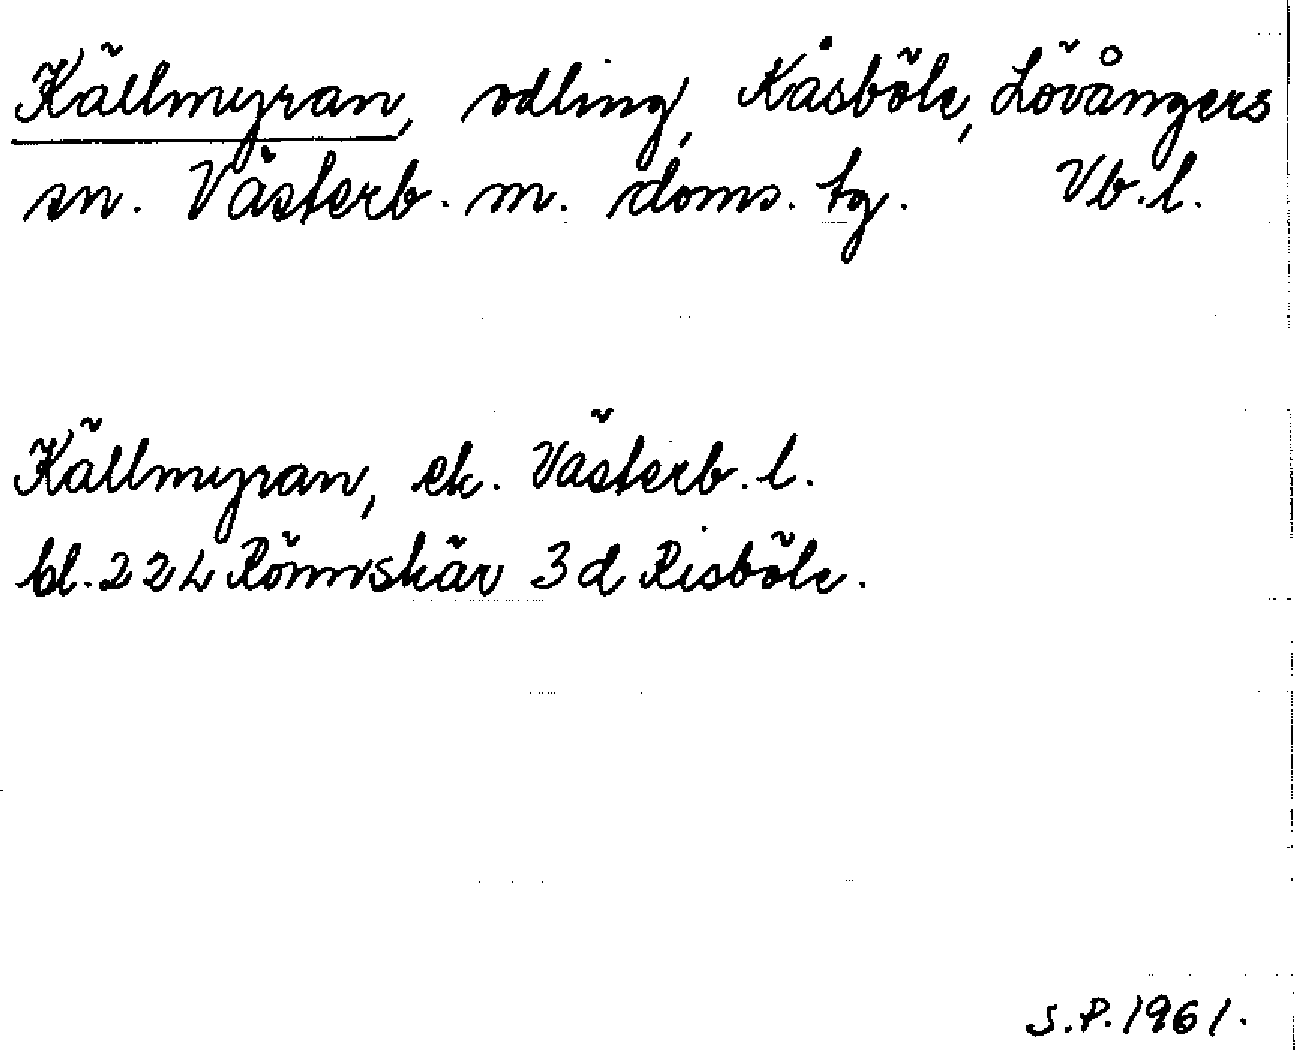 Källmyran, odling, Kåsböle, Lövångers
sn. Västerb. m. doms. tg. Vb. l.
Källmyran, ek. Västerb. l.
bl. 22L Rönnskär 3d Risböle.
S.P. 1961.